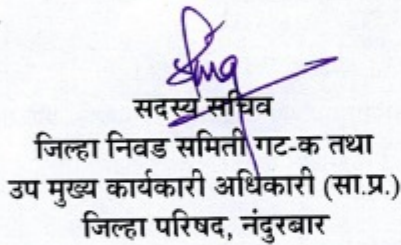 सदस्य सचिव
जिल्हा निवड समिती गट-क तथा
उप मुख्य कार्यकारी अधिकारी (सा.प्र.)
जिल्हा परिषद, नंदुरबार